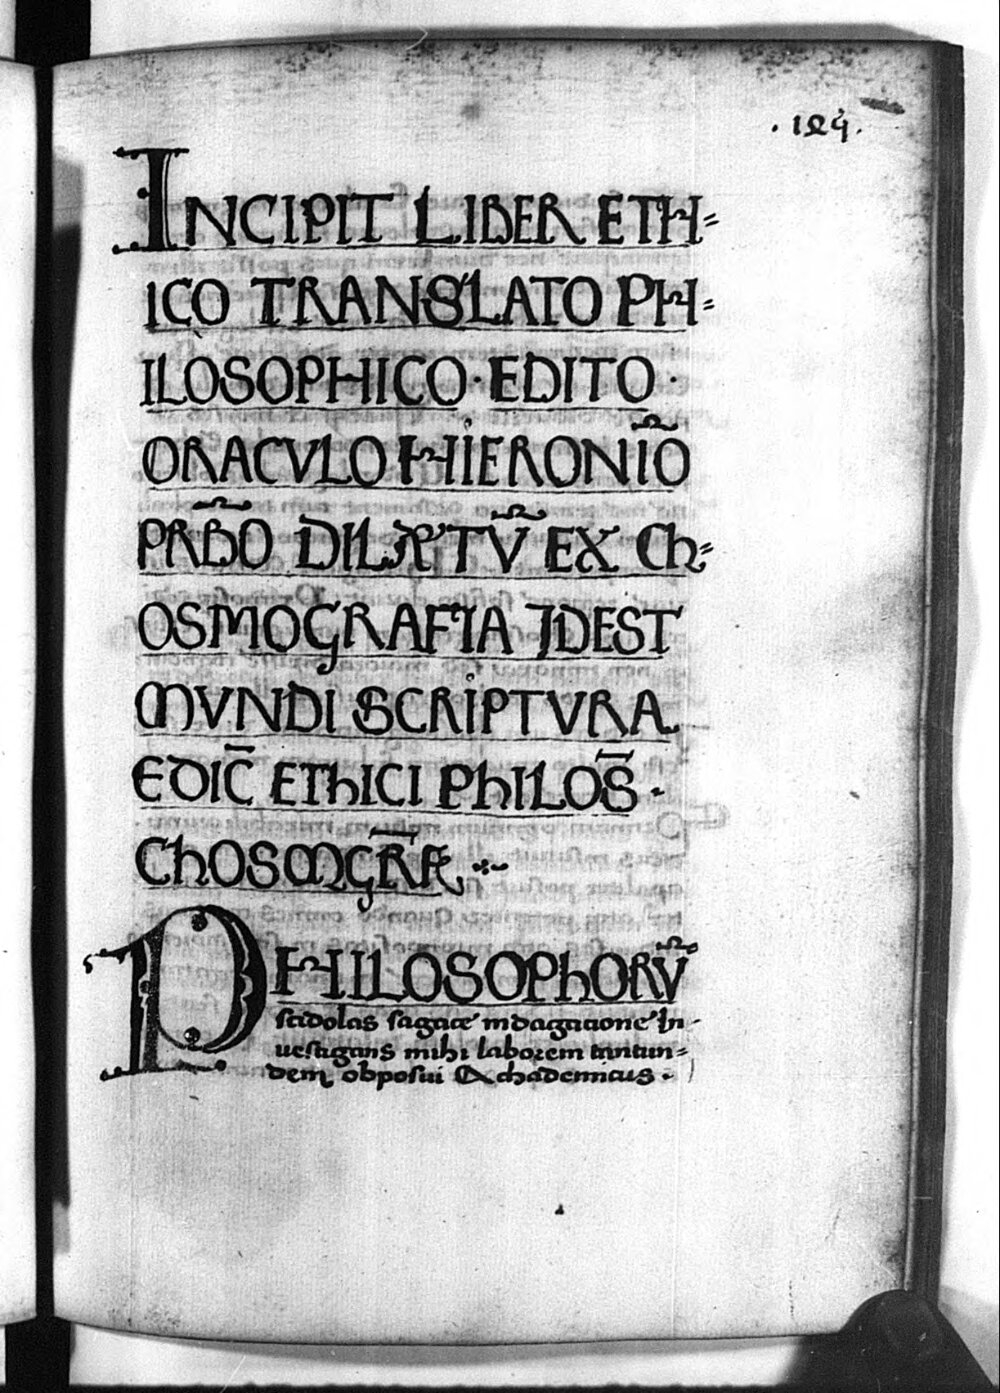 . 124 .
INCIPIT LIBER ETH=
ICO TRANSLATO PH=
ILOSOPHICO · EDITO
ORACVLO HIERONIO̅
PRB̅O DILATV̅ EX Ch=
OSMOGRAFIA IDEST
MVNDI SCRIPTVRA
EDIC̅ EThICI PhILOS̅ ·
ChOSMGR̅Æ
PHILOSOPhORV̅
scidolas sagace indagatione In-
uestigans mihi laborem tantun=
dem obposui Achademicus ·